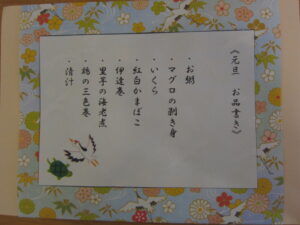 《元旦 お品書き》
・お粥
・マグロの剥き身
・いくら
・紅白かまぼこ
・伊達巻
・里芋の海老煮
・鶏の三色巻
・清汁